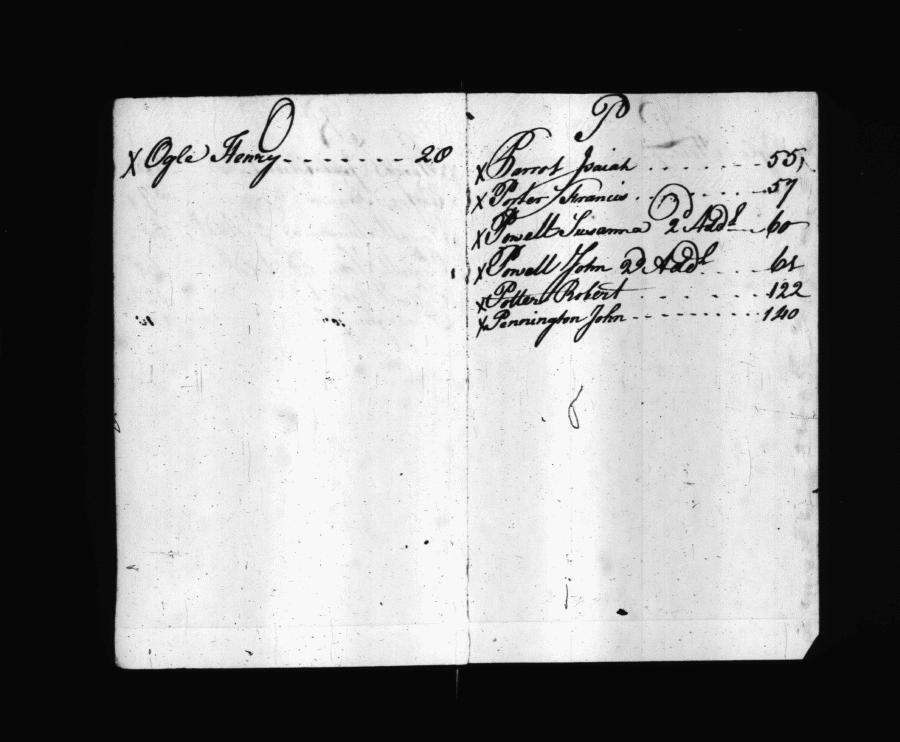 O
x Ogle Henry - - - - - - - 28
P
x Parrot Isaiah . . . . . . . 55
x Porter Francis . . . . . . 57
x Powell Susanna 2d Addl - - 60
x Powell John 2d Addl . . . 61
x Potter Robert . . . . . . . 122
x Pennington John - - - - - - - - 140